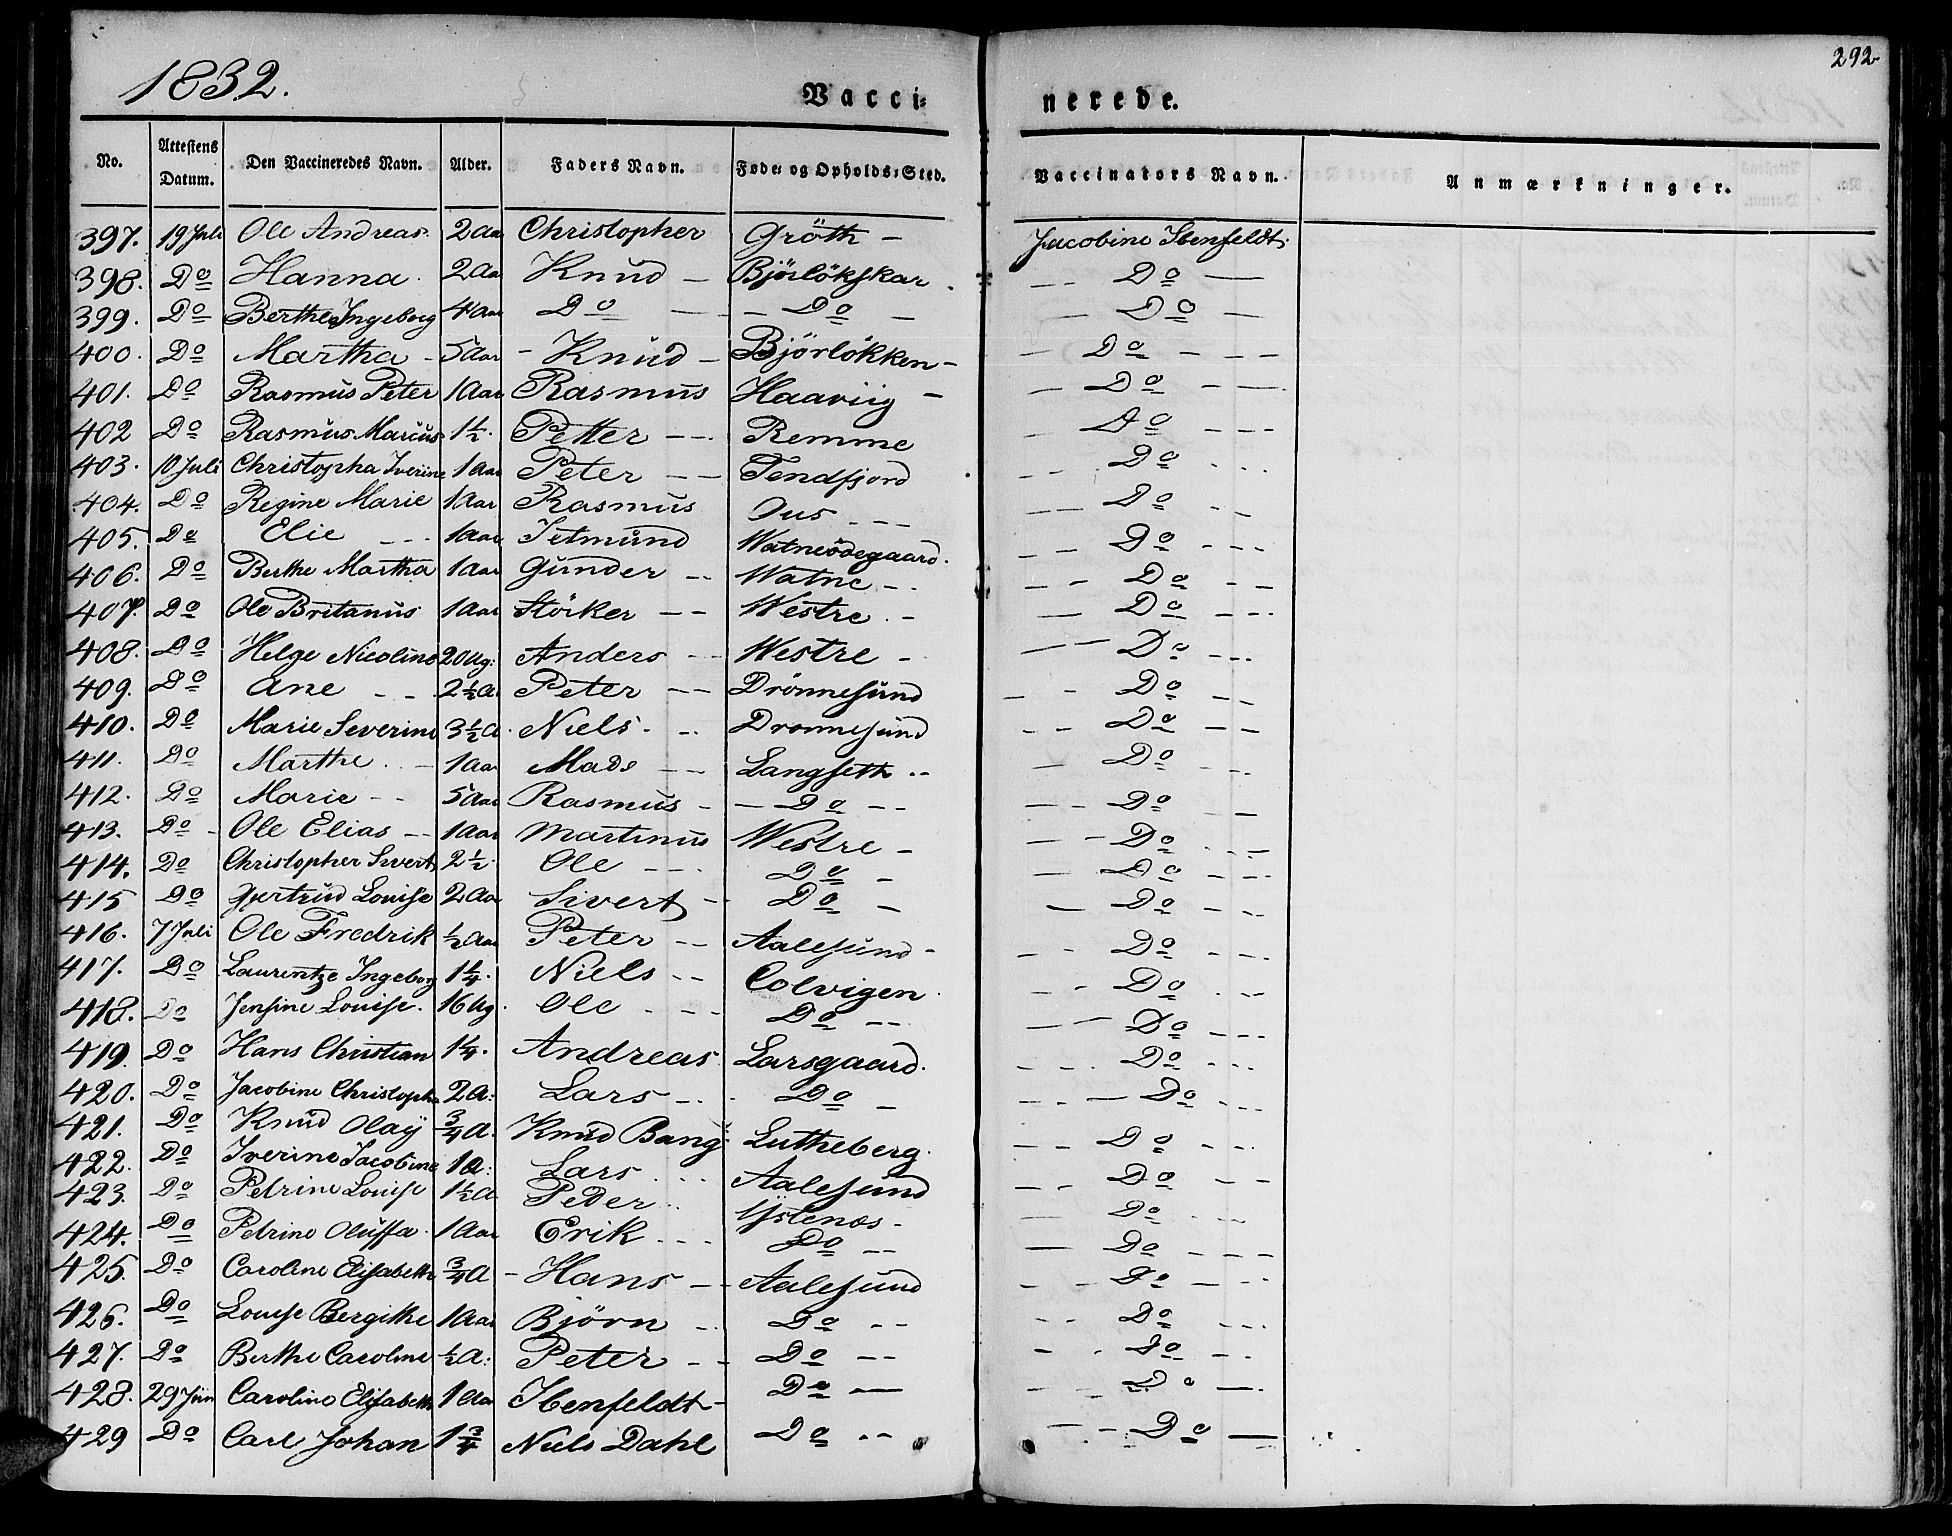 1832.
Vacci=
nerede.
292
No. Attestens Datum. Den Vaccineredes Navn. Alder. Faders Navn. Føde= og Opholds=Sted. Vaccinators Navn. Anmærkninger.
397. 19 Juli Ole Andreas. 2 Aar Christopher Gröth - Jacobine Ibenfeldt.
398. Do Hanna. 2 Aa Knud - Björlökskar. -- Do -
399. Do Berthe Ingeborg 4 Aar Do - - Do - - Do -
400. Do Martha - 5 Aar - Knud - Björlökken - - Do - - -
401. Do Rasmus Peter 1 Aar Rasmus Haaviig - - Do - -
402 Do Rasmus Marcus 1½. Petter -- Remme - Do - - -
403. 10 Juli Christopha Iverine 1 Aar Peter -- Tendfjord - Do - - -
404. Do Regine Marie 1 Aar Rasmus Ous - - - -- Do - -
405. Do Elie - - - 1 Aar Jetmund Watneödegaard. -- Do - - -
406. Do Berthe Martha 1 Aar Gunder -- Watne -- -- Do - -
407. Do Ole Britanus 1 Aar Störker -- Westre - - Do - - -
408. Do Helge Nicoline 20 Ug: Anders -- Westre - -- Do - - -
409. Do Ane - - 2½ A. Peter -- Drönnesund -- Do - -
410. Do Marie Severine 3½ A. Niels. -- Dronnesund -- Do - -
411. Do Marthe. - 1 Aar Mads -- Langseth -- - Do - - -
412. Do Marie -- 5 Aar Rasmus - - Do -- -- Do -
413. Do - Ole Elias -- 1 Aar Martinus Westre - -- Do - - -
414. Do Christopher Sivert 2½. Ole - - - Do - -- Do - - -
415 Do Gjertrud Louise 2 Aar Sivert - Do - - Do - - -
416. 7 Juli Ole Fredrik ½ Aar Peter -- Aalesund - -- Do - - -
417. Do Laurentze Ingeborg 1¼. Niels -- Colvigen. -- Do - - -
418. Do Jensine Louise. 16 Ug. Ole - - - Do -- -- Do - - -
419. Do Hans Christian 1¼. Andreas Larsgaard. - - - Do - - -
420. Do Jacobine Christopha 2 A: Lars - - - Do - - - - Do - - -
421. Do Knud Olay ¾ A. Knud Bang Lutheberg. -- Do - - -
422. Do Iverine Jacobine 1 A: Lars - - - Aalesund -- Do - -
423. Do Petrine Louise 1½ A Peder - - Ystenæs - -- Do - - -
424. Do Petrine Oluffa. 1 Aar Erik - - - Do -- - Do - - -
425. Do Caroline Elisabeth ¾ A - Hans -- Aalesund -- Do - - -
426. Do Louise Bergithe 1 Aar Björn -- Do -- -- Do - - -
427. Do Berthe Caroline ½ A: Peter -- Do -- -- Do - -
428. 29 Jun Caroline Elisabeth 1 Aar Ibenfeldt - Do - -- Do -
429 Do Carl Johan 1¾ Niels Dahl Do -- -- Do -